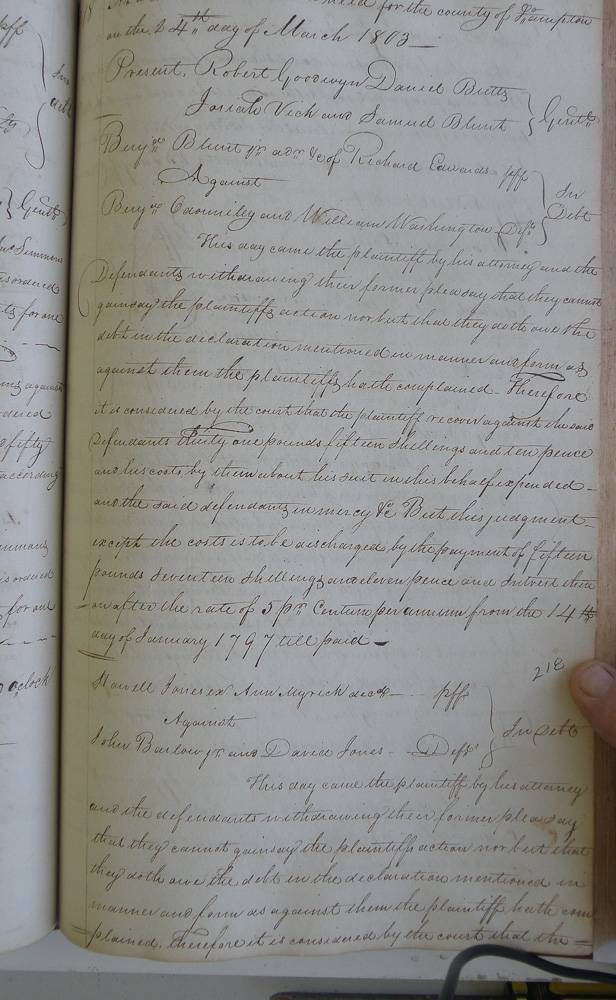 for the county of Sohampton
on the 24th day of March 1803
Present, Robert Goodwyn Daniel Butts
Josiah Vick and Samuel Blunt } Gentn
Benjn Blunt jr adr &c of Richard Edwards plff
Against } In Debt
Benjn and William Washington Defts
This day came the plaintiff by his attorney and the
Defendants withdrawing their former plea say that they cannot
gainsay the plaintiffs action nor but that they doth owe the
debt in the declaration mentioned in manner and form as
against them the plaintiffs hath complained – Therefore
it is considered by the court that the plaintiff recover against the said
Defendants thirty one pounds fifteen shellings and ten pence
and his costs by them about his suit in this behalf expended –
and the said defendants in mercy &c But this judgment
except the costs is to be discharged by the payment of fifteen
pounds seventeen shellings and eleven pence and Interest there
on after the rate of 5 pr Centum per annum from the 14th
day of January 1797 till paid –
218
Howell Jones ex Ann Myrick decd – plff
Against } In Debt
John Barlow jr and David Jones – Defts
This day came the plaintiff by his attorney
and the defendants withdrawing their former plea say
that they cannot gainsay the plaintiffs action nor but that
they doth owe the debt in the declaration mentioned in
manner and form as against them the plaintiff hath com
plained, therefore it is considered by the court that the